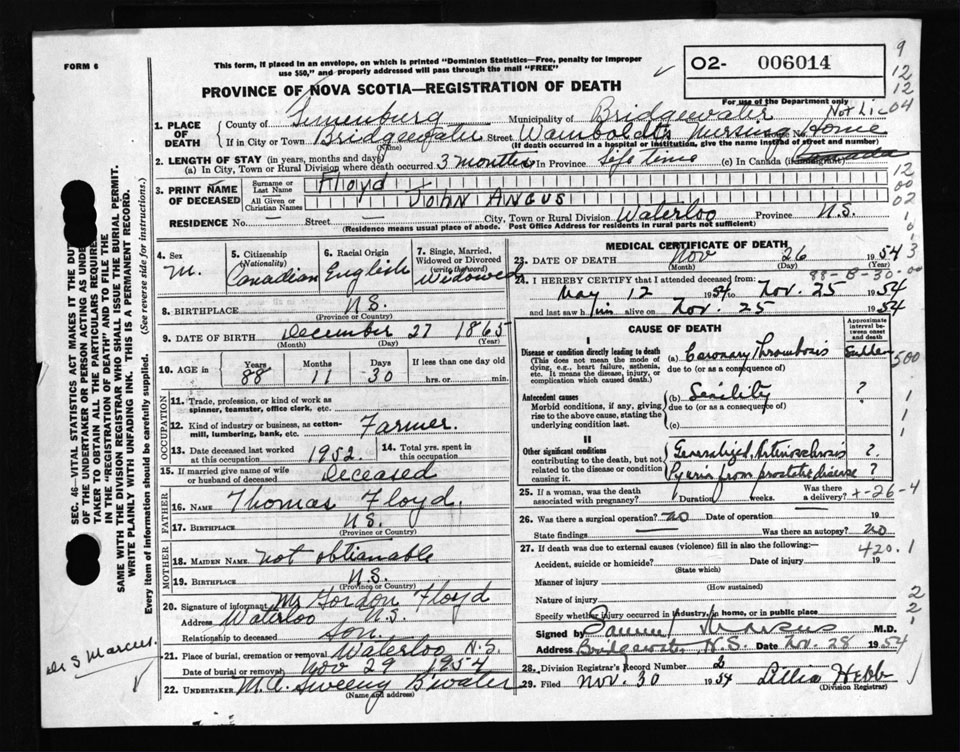 FORM 6
This form, if placed in an envelope, on which is printed "Dominion Statistics—Free, penalty for improper
use $50," and properly addressed will pass through the mail "FREE"
O2- 006014
PROVINCE OF NOVA SCOTIA—REGISTRATION OF DEATH
For use of the Department only
9
12
12
04
Not Lic
1. PLACE OF DEATH
County of Lunenburg Municipality of Bridgewater
If in City or Town Bridgewater Street Wamboldts Nursing Home
(Name) (If death occurred in a hospital or institution, give the name instead of street and number)
2. LENGTH OF STAY (in years, months and days)
(a) In City, Town or Rural Division where death occurred 3 months In Province Life time (c) In Canada (if immigrant) Canada
12
00
02
3. PRINT NAME OF DECEASED
Surname or Last Name Floyd
All Given or Christian Names JOHN ANGUS
RESIDENCE No. — Street — City, Town or Rural Division Waterloo Province N.S.
(Residence means usual place of abode. Post Office Address for residents in rural parts not sufficient)
4. Sex M.
5. Citizenship (Nationality) Canadian
6. Racial Origin English
7. Single, Married, Widowed or Divorced (write the word) Widowed
8. BIRTHPLACE N.S.
(Province or Country)
9. DATE OF BIRTH December 27 1865
(Month) (Day) (Year)
10. AGE in Years 88 Months 11 Days 30 If less than one day old
hrs. or min.
OCCUPATION
11. Trade, profession, or kind of work as
spinner, teamster, office clerk, etc.
12. Kind of industry or business, as cotton-
mill, lumbering, bank, etc. Farmer.
13. Date deceased last worked
at this occupation 1952.
14. Total yrs. spent in
this occupation
15. If married give name of wife
or husband of deceased Deceased
FATHER
16. NAME Thomas Floyd
17. BIRTHPLACE N.S.
(Province or Country)
MOTHER
18. MAIDEN NAME not obtianable
19. BIRTHPLACE N.S.
(Province or Country)
20. Signature of informant Mr Gordon Floyd
Address Waterloo N.S.
Relationship to deceased Son.
21. Place of burial, cremation or removal Waterloo N.S.
Date of burial or removal Nov 29 1954
22. UNDERTAKER M. A. Sweeny B'water
(Name and address)
MEDICAL CERTIFICATE OF DEATH
23. DATE OF DEATH Nov 26 1954
(Month) (Day) (Year)
88-8-30-00
24. I HEREBY CERTIFY that I attended deceased from:
May 12 1954 to Nov. 25 1954
and last saw him alive on Nov. 25 1954
CAUSE OF DEATH
Approximate interval between onset and death
I
Disease or condition directly leading to death
(This does not mean the mode of dying, e.g., heart failure, asthenia, etc. It means the disease, injury, or complication which caused death.)
(a) Coronary Thrombosis Sudden
500
due to (or as a consequence of)
Antecedent causes
Morbid conditions, if any, giving rise to the above cause, stating the underlying condition last.
(b) Senility ?
due to (or as a consequence of)
(c)
II
Other significant conditions
contributing to the death, but not related to the disease or condition causing it.
Generalized Arteriosclerosis ?
Pyuria from prostatic disease ?
25. If a woman, was the death
associated with pregnancy? Duration weeks. Was there a delivery?
x-26-4
26. Was there a surgical operation? no Date of operation 19
State findings Was there an autopsy? no
27. If death was due to external causes (violence) fill in also the following:—
420.1
Accident, suicide or homicide? Date of injury 19
(State which)
Manner of injury
(How sustained)
Nature of injury
Specify whether injury occurred in industry, in home, or in public place
Signed by Samuel Marcus M.D.
Address Bridgewater, N.S. Date Nov. 28 1954
28. Division Registrar's Record Number
29. Filed Nov. 30 1954 Lillia Hebb
(Division Registrar)
SEC. 46—VITAL STATISTICS ACT MAKES IT THE DUTY
OF THE UNDERTAKER OR PERSON ACTING AS UNDER
TAKER TO OBTAIN ALL THE PARTICULARS REQUIRED
IN THE "REGISTRATION OF DEATH" AND TO FILE THE
SAME WITH THE DIVISION REGISTRAR WHO SHALL ISSUE THE BURIAL PERMIT.
WRITE PLAINLY WITH UNFADING INK. THIS IS A PERMANENT RECORD.
Every item of information should be carefully supplied. (See reverse side for instructions.)
Dr S Marcus.